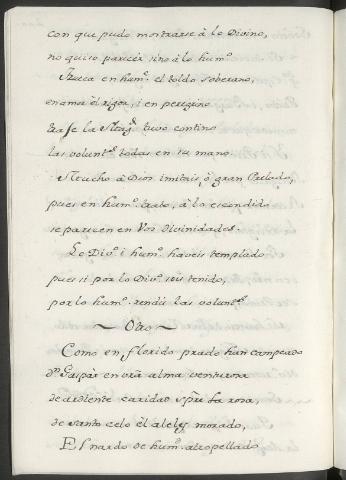 con que pudo mostrarse à lo Divino,
no quiso parecer sino à lo hum.º
Trueca en hum.º el toldo soberano,
en ama el rigor, i en peregrino
trase la Mag.d tuvo contino
las volunt.s todas en su mano
Mucho à Dios imitais, ò gran Prelado,
pues en hum.º trato, à lo escondido
se parecen en Vos divinidades.
Lo Div.º i hum.º haveis templado
pues si por lo Div.º sois tenido,
por lo hum.º rendis las volunt.s
~ Otro ~
Como en florido prado han campeado
D.n Gaspàr en vr̃a alma venturosa
de ardiente caridad sp̃re la rosa,
de santo celo el alelì morado,
El nardo de hum.d atropellado